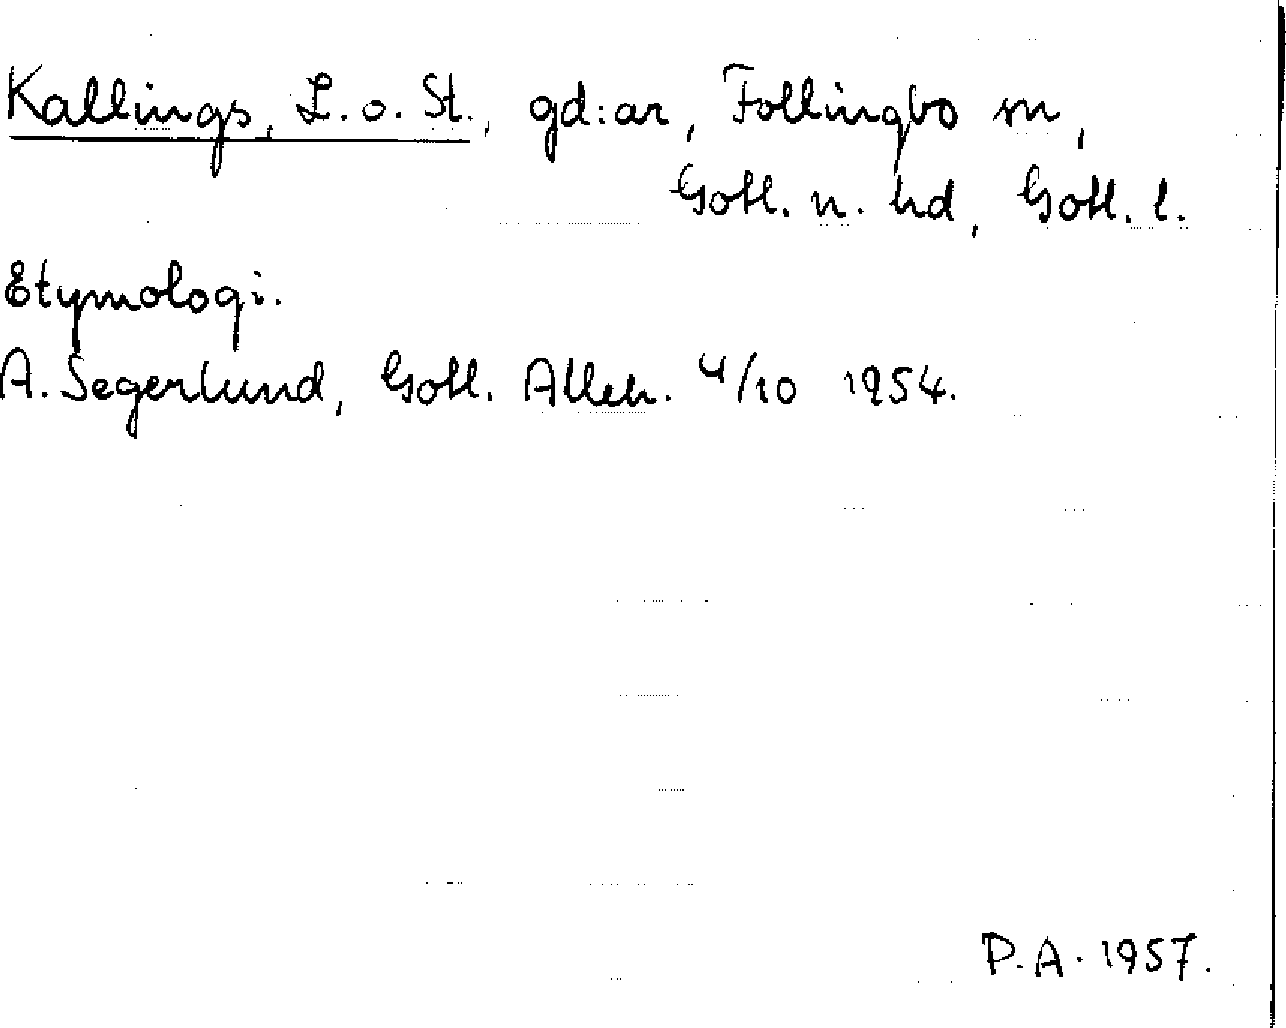 Kallings, L. o. St., gd:ar, Follingbo sn,
Gotl. n. hd, Gotl. l.
Etymologi.
A. Segerlund, Gotl. Alleh. 4/10 1954.
P.A. 1957.